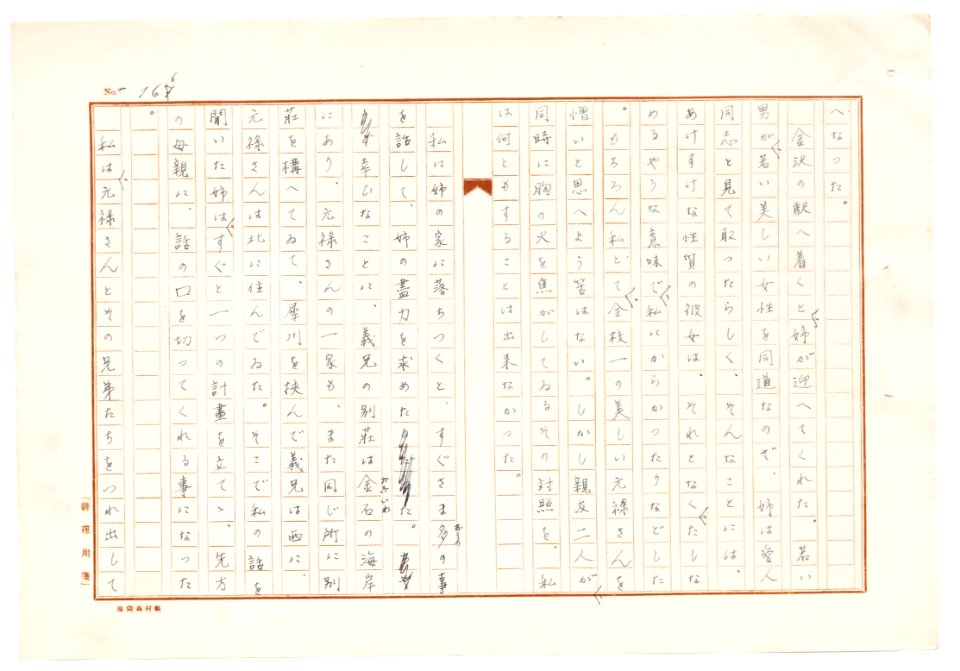 No. 166
へなつた。
金沢の駅へ着くと、姉が迎へてくれた。若い
男が、若い美しい女性を同道なので、姉は愛人
同志と見て取つたらしく、そんなことには、
あけすけな性質の彼女は、それとなく、たしな
めるやうな意味で、私にからかつたりなどした
。もちろん私とて、全校一の美しい元禄さんを
憎いと思へよう筈はない。しかし親友二人が、
同時に胸の火を焦がしてゐるその対照を、私
は何ともすることは出来なかつた。
私は姉の家に落ちつくと、すぐさま多の事
を話して、姉の盡力を求めた。
幸ひなことに、義兄の別荘は金石の海岸
かないわ
にあり、元禄さんの一家も、また同じ所に別
荘を構へてゐて、犀川を挾んで義兄は西に、
元禄さんは北に住んでゐた。そこで私の話を
聞いた姉は、すぐと一つの計畫を立てゝ、先方
の母親に、話の口を切つてくれる事になつた
。
私は、元禄さんとその兄弟たちをつれ出して
「耕筰用箋」